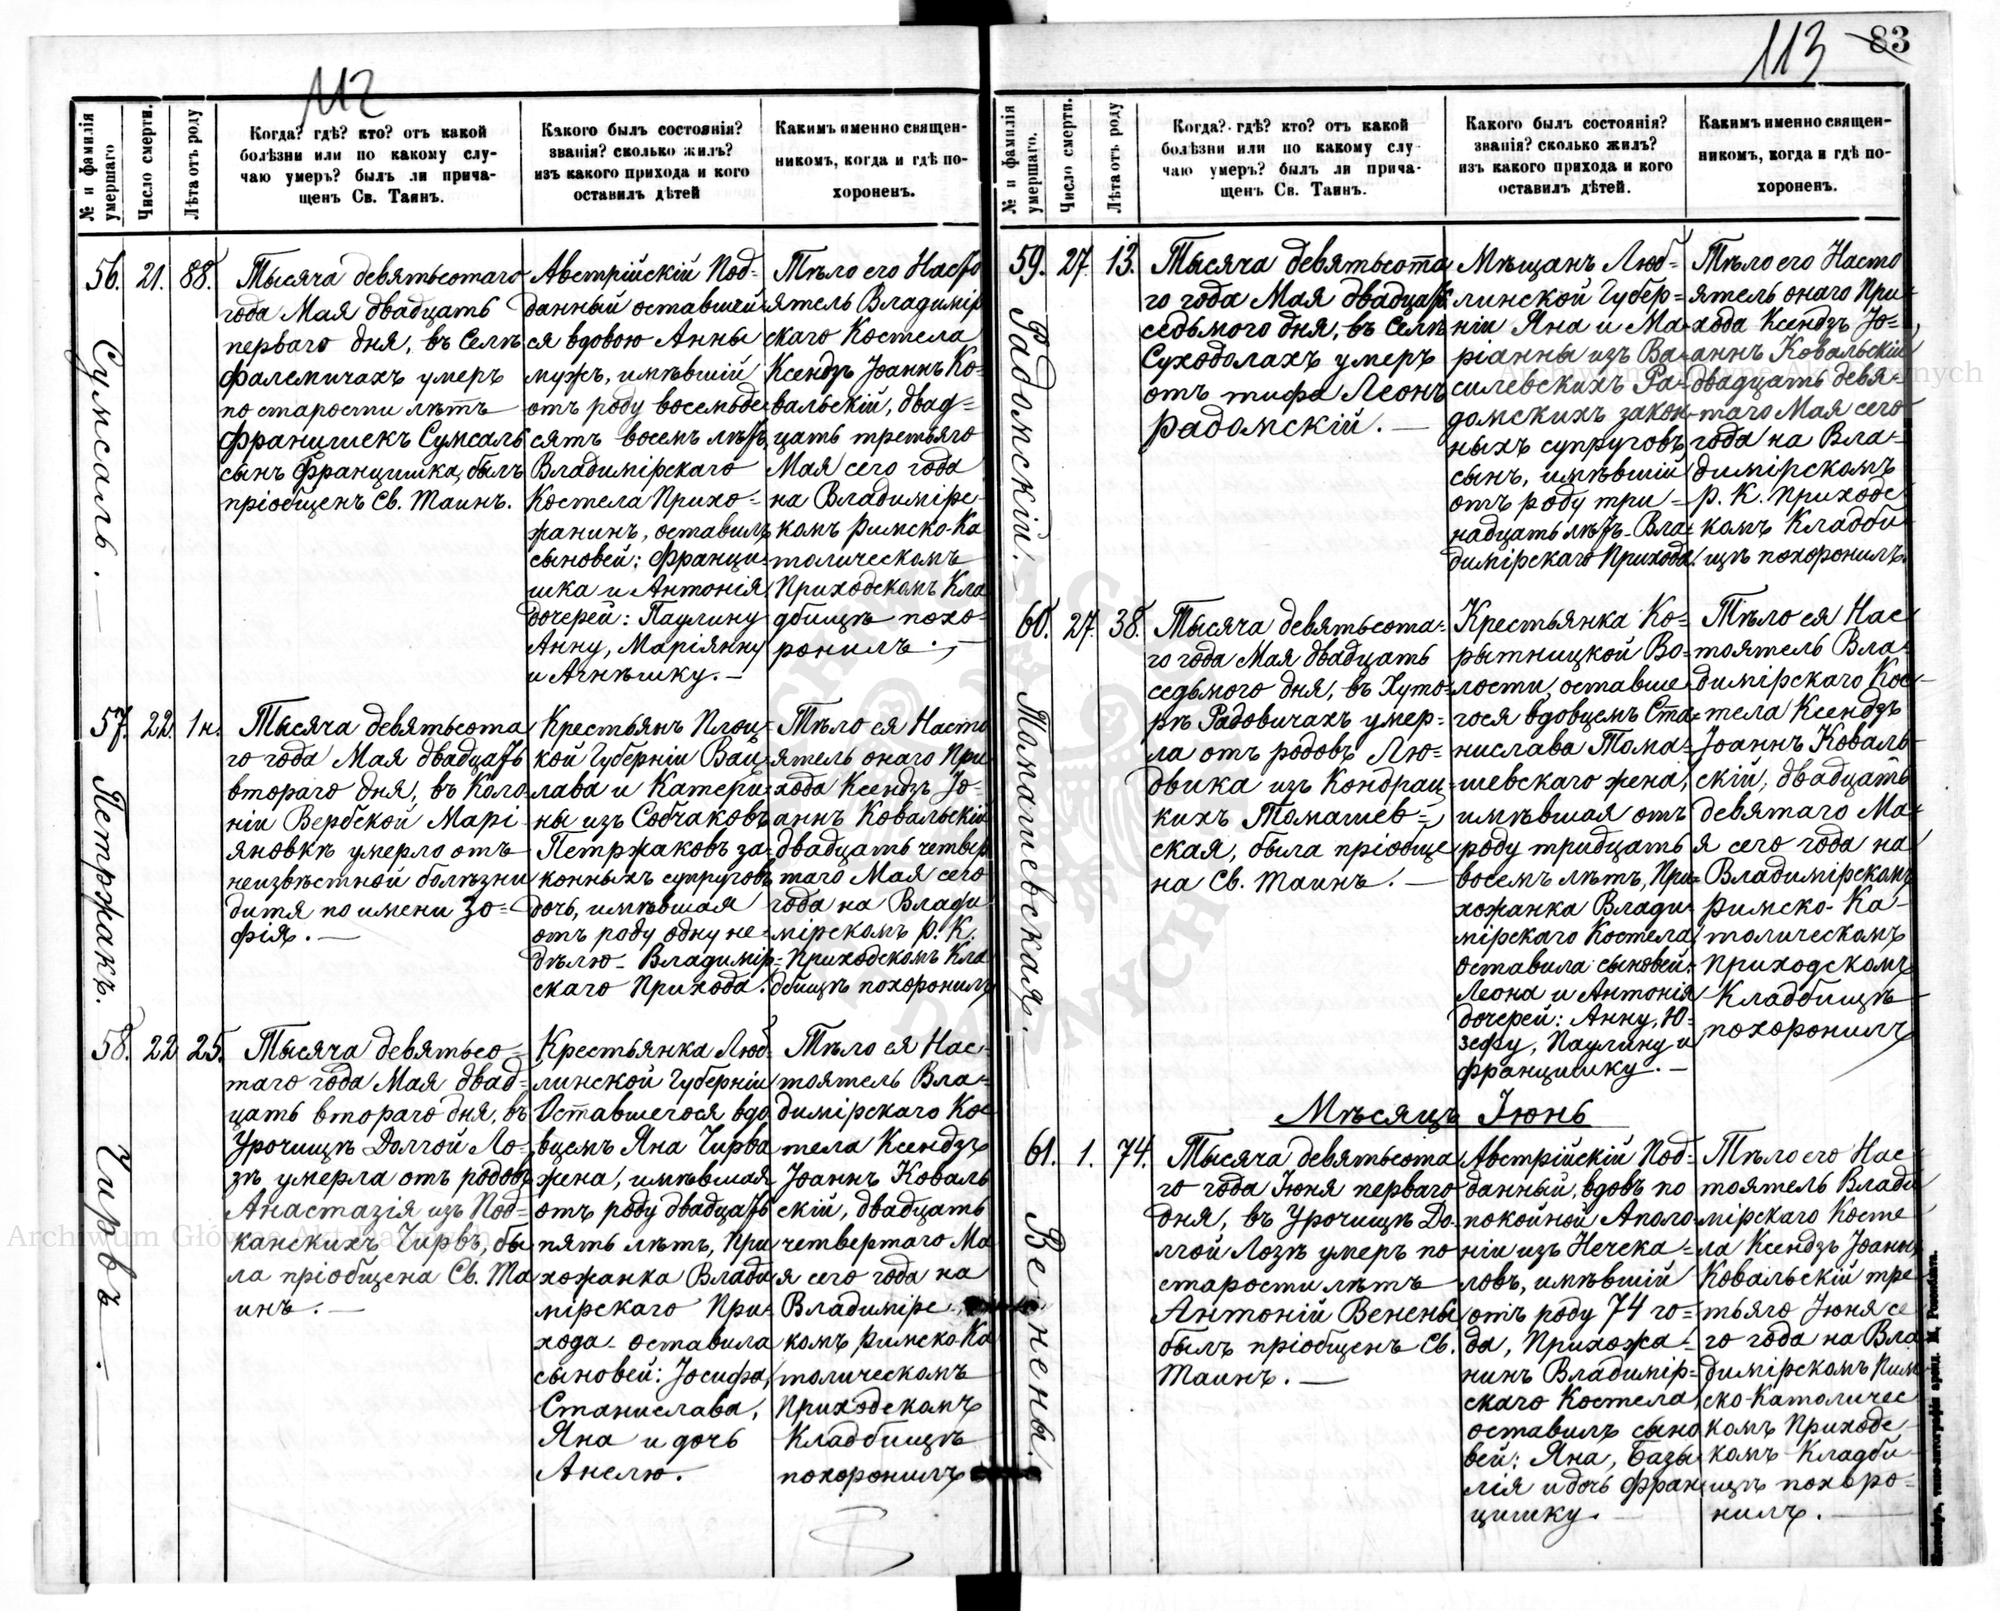 112
№ и фамилія умершаго
Число смерти.
Лѣта отъ роду
Когда? гдѣ? кто? отъ какой
болѣзни или по какому слу-
чаю умеръ? былъ ли прича-
щенъ Св. Таинъ.
Какого былъ состоянія?
званія? сколько жилъ?
изъ какого прихода и кого
оставилъ дѣтей
Какимъ именно священ-
никомъ, когда и гдѣ по-
хороненъ.
56. 21. 88.
Сумсаль.
Тысяча девятьсотаго
года Мая двадцать
перваго дня, въ Селѣ
Фалемичахъ умеръ
по старости лѣтъ
Францишекъ Сумсаль
сынъ Францишка, былъ
пріобщенъ Св. Таинъ.
Австрійскій Под-
данный оставшей-
ся вдовою Анны
мужъ, имѣвшій
отъ роду восемьде-
сятъ восемь лѣтъ,
Владимірскаго
Костела Прихо-
жанинъ, оставилъ
сыновей: Франци-
шка и Антонія
дочерей: Паулину
Анну, Маріянну
и Агнѣшку.
Тѣло его Насто-
ятель Владимір
скаго Костела
Ксендзъ Іоаннъ Ко-
вальскій, двад-
цать третьяго
Мая сего года
на Владимірс-
комъ Римско-Ка
толическомъ
Приходскомъ Кла
дбищѣ похо-
ронилъ.
57. 22. 1 н.
Петржакъ.
Тысяча девятьсота
го года Мая двадцать
втораго дня, въ Коло
ніи Вербской Марі-
яновкѣ умерло отъ
неизвѣстной болѣзни
дитя по имени Зо-
фія.
Крестьянъ Плоц-
кой Губерніи Вац-
лава и Катери-
ны изъ Собчаковъ
Петржаковъ за-
конныхъ супруговъ
дочь, имѣвшая
отъ роду одну не-
дѣлю - Владимір-
скаго Прихода.
Тѣло ея Насто
ятель онаго При
хода Ксендзъ Іо-
аннъ Ковальскій
двадцать четвер
таго Мая сего
года на Влади
мірскомъ Р. К.
Приходскомъ Кла
дбищѣ похоронилъ
58. 22 25.
Чирвъ.
Тысяча девятьсо-
таго года Мая двад-
цать втораго дня, въ
Урочищѣ Долгой Ло-
зѣ умерла отъ родовъ
Анастазія изъ Под-
канскихъ Чирвъ, бы
ла пріобщена Св. Та
инъ.
Крестьянка Люб-
линской Губерніи
Оставшегося вдо
вцемъ Яна Чирва
жена, имѣвшая
отъ роду двадцать
пять лѣтъ, При
хожанка Влади
мірскаго При-
хода - оставила
сыновей: Іосифа,
Станислава,
Яна и дочь
Анелю.
Тѣло ея Нас-
тоятель Вла-
димірскаго Кос
тела Ксендзъ
Іоаннъ Коваль
скій, двадцать
четвертаго Ма
я сего года на
Владимірс-
комъ Римско-Ка
толическомъ
Приходскомъ
Кладбищѣ
похоронилъ
113 83
№ и фамилія умершаго.
Число смерти.
Лѣта отъ роду
Когда? гдѣ? кто? отъ какой
болѣзни или по какому слу-
чаю умеръ? былъ ли прича-
щенъ Св. Таинъ.
Какого былъ состоянія?
званія? сколько жилъ?
изъ какого прихода и кого
оставилъ дѣтей.
Какимъ именно священ-
никомъ, когда и гдѣ по-
хороненъ.
59. 27. 13.
Радомскій.
Тысяча девятьсота
го года Мая двадцать
седьмого дня, въ Селѣ
Суходолахъ умеръ
отъ тифа Леонъ
Радомскій.
Мѣщанъ Люб-
линской Губер-
ніи Яна и Ма-
ріанны изъ Ва-
силевскихъ Ра-
домскихъ закон-
ныхъ супруговъ
сынъ, имѣвшій
отъ роду три-
надцать лѣтъ - Вла-
димірскаго Прихода.
Тѣло его Насто
ятель онаго При-
хода Ксендзъ Іо-
аннъ Ковальскій
двадцать девя-
таго Мая сего
года на Вла-
димірскомъ
Р. К. Приходс
комъ Кладби-
щѣ похоронилъ.
60. 27. 38.
Томашевская.
Тысяча девятьсота-
го года Мая двадцать
седьмого дня, въ Хуто-
рѣ Радовичахъ умер-
ла отъ родовъ Лю-
двика изъ Кондрац-
кихъ Томашев-
ская, была пріобще
на Св. Таинъ.
Крестьянка Ко-
рытницкой Во-
лости, оставше-
гося вдовцемъ Ста-
нислава Тома-
шевскаго жена,
имѣвшая отъ
роду тридцать
восемь лѣтъ, При-
хожанка Влади-
мірскаго Костела
Оставила сыновей:
Леона и Антонія
дочерей: Анну, Ю-
зефу, Паулину и
Францишку.
Тѣло ея Нас-
тоятель Вла-
димірскаго Кос-
тела Ксендзъ
Іоаннъ Коваль-
скій, двадцать
девятаго Ма-
я сего года на
Владимірскомъ
Римско-Ка-
толическомъ
Приходскомъ
Кладбищѣ
похоронилъ
Мѣсяцъ Іюнь
61. 1. 74.
Венены.
Тысяча девятьсота
го года Іюня перваго
дня, въ Урочищѣ До-
лгой Лозѣ умеръ по
старости лѣтъ
Антоній Венены
былъ пріобщенъ Св.
Таинъ.
Австрійскій Под-
данный, вдовъ по
покойной Аполо
ніи изъ Нечска-
ловъ, имѣвшій
отъ роду 74 го-
да, Прихожа-
нинъ Владимір-
скаго Костела,
оставилъ сыно
вей: Яна, Базы
лія и дочь Фран
цишку.
Тѣло его Нас-
тоятель Влади
мірскаго Косте
ла Ксендзъ Іоаннъ
Ковальскій тре
тьяго Іюня се
го года на Вла
димірскомъ Рим-
ско-Католичес
комъ Приходс-
комъ Кладби-
щѣ похоро-
нилъ.
Archiwum Główne Akt Dawnych
Archiwum Główne Akt Dawnych